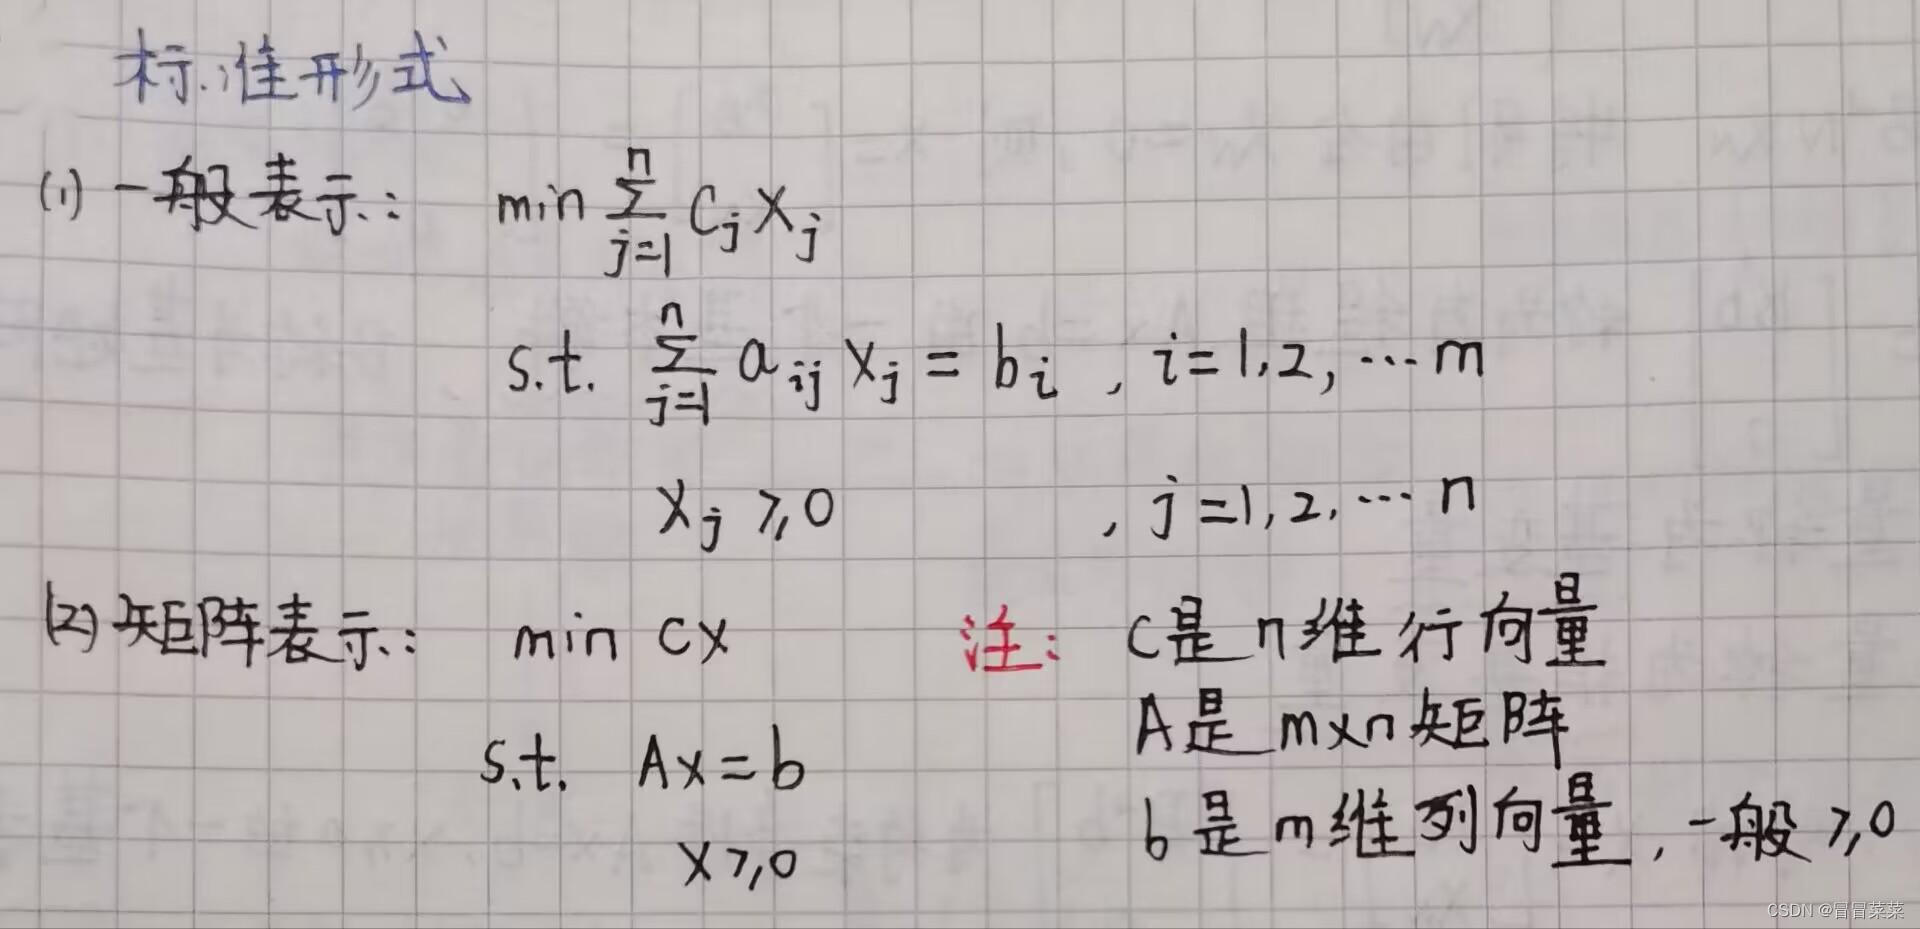 标准形式
(1) 一般表示: min ∑_{j=1}^{n} C_j X_j
s.t. ∑_{j=1}^{n} a_{ij} X_j = b_i , i=1,2,…m
X_j ≥0 , j=1,2,…n
(2) 矩阵表示: min CX
s.t. AX=b
X≥0
注: C是n维行向量
A是m×n矩阵
b是m维列向量,一般≥0
CSDN @冒冒菜菜